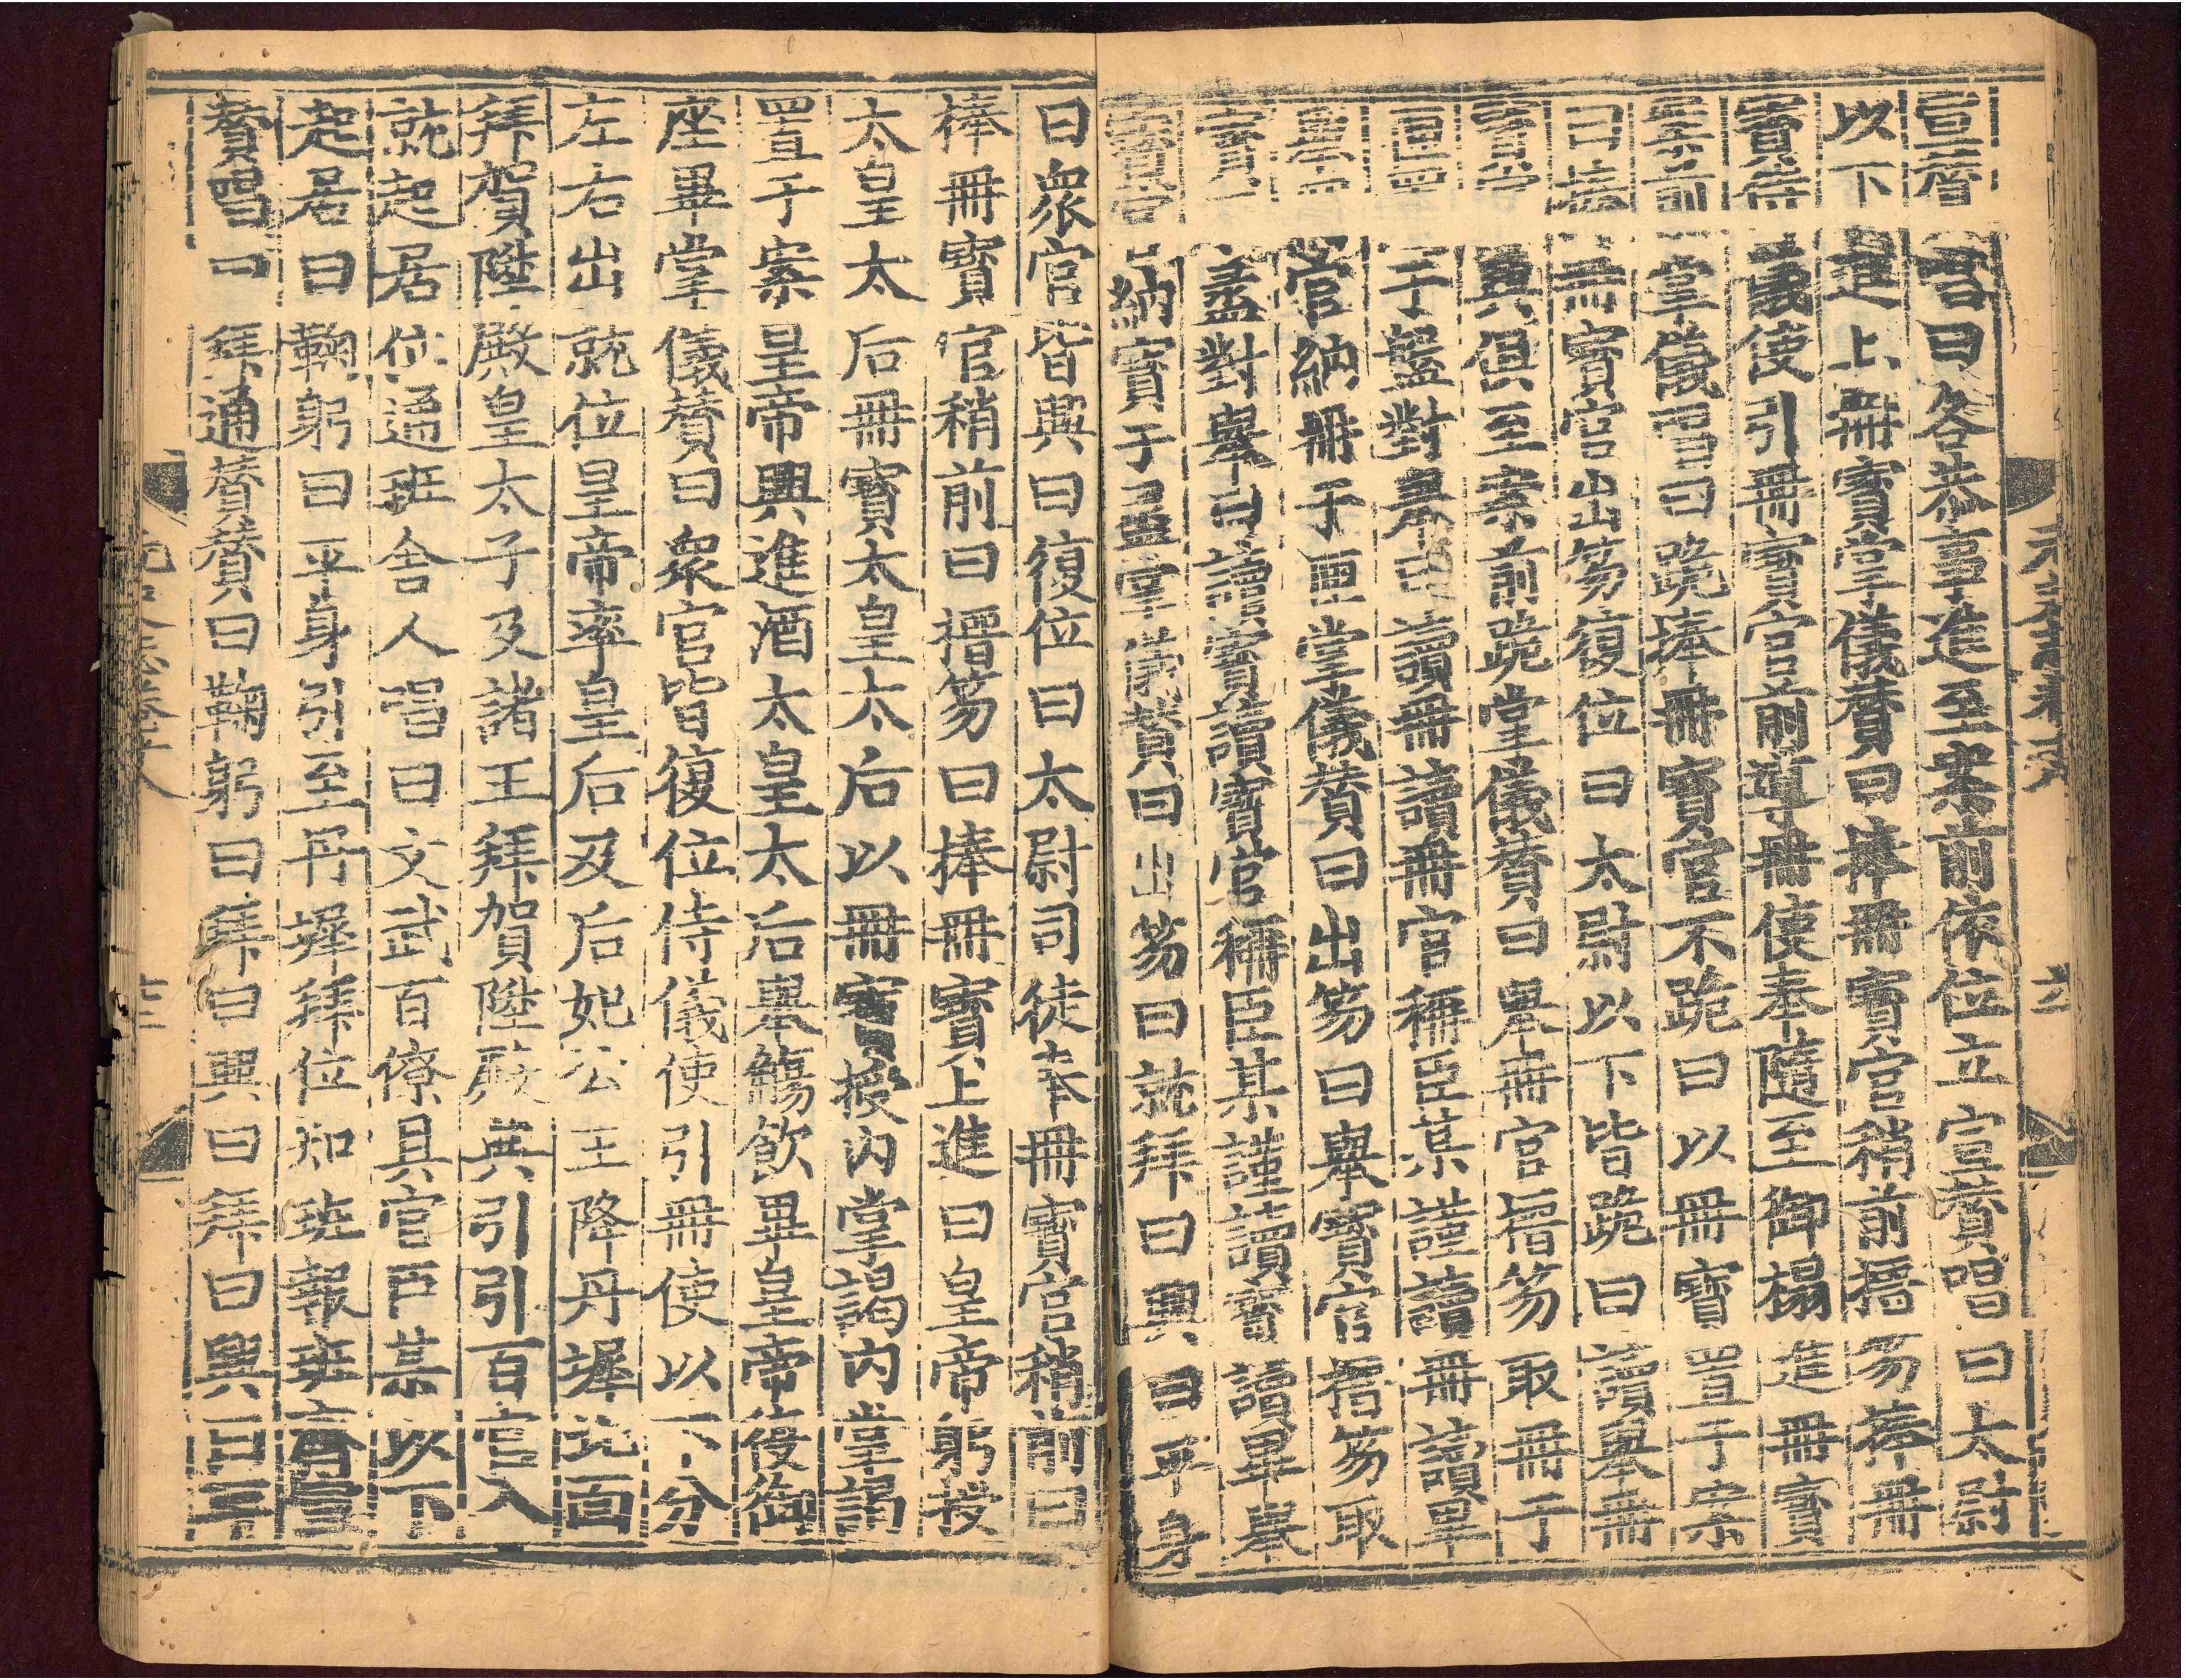 宣贊唱曰各恭事進至案前依位立宣贊唱曰太尉
以下進上冊寶掌儀贊曰捧冊寶官稍前搢笏捧冊
寶侍儀使引冊寶官前導冊使奉隨至御榻進冊寶
案前掌儀唱曰跪捧冊寶官不跪曰以冊寶置于案
曰捧冊寶官出笏復位曰太尉以下皆跪曰讀舉冊
官興俱至案前跪掌儀贊曰舉冊官搢笏取冊于
置于盤對舉曰讀冊讀冊官稱臣某謹讀冊讀畢
官納冊于匣掌儀贊曰出笏曰舉寶官搢笏取
寶盝對舉曰讀寶讀寶官稱臣某謹讀寶讀畢舉
寶官納寶于盝掌儀贊曰出笏曰就拜曰興曰平身
曰眾官皆興曰復位曰太尉司徒奉冊寶官稍前曰
捧冊寶官稍前曰搢笏曰捧冊寶上進曰皇帝躬授
太皇太后冊寶太皇太后以冊寶授內掌謁內掌謁
置于案皇帝興進酒太皇太后舉觴飲畢皇帝復御
座畢掌儀贊曰眾官皆復位侍儀使引冊使以下分
左右出就位皇帝率皇后及后妃公主降丹墀北面
拜賀陞殿皇太子及諸王拜賀陞殿典引引百官入
就起居位通班舍人唱曰文武百僚具官臣某以下
起居曰鞠躬曰平身引至丹墀拜位知班報班齊宣
贊唱曰拜通贊贊曰鞠躬曰拜曰興曰拜曰興曰三